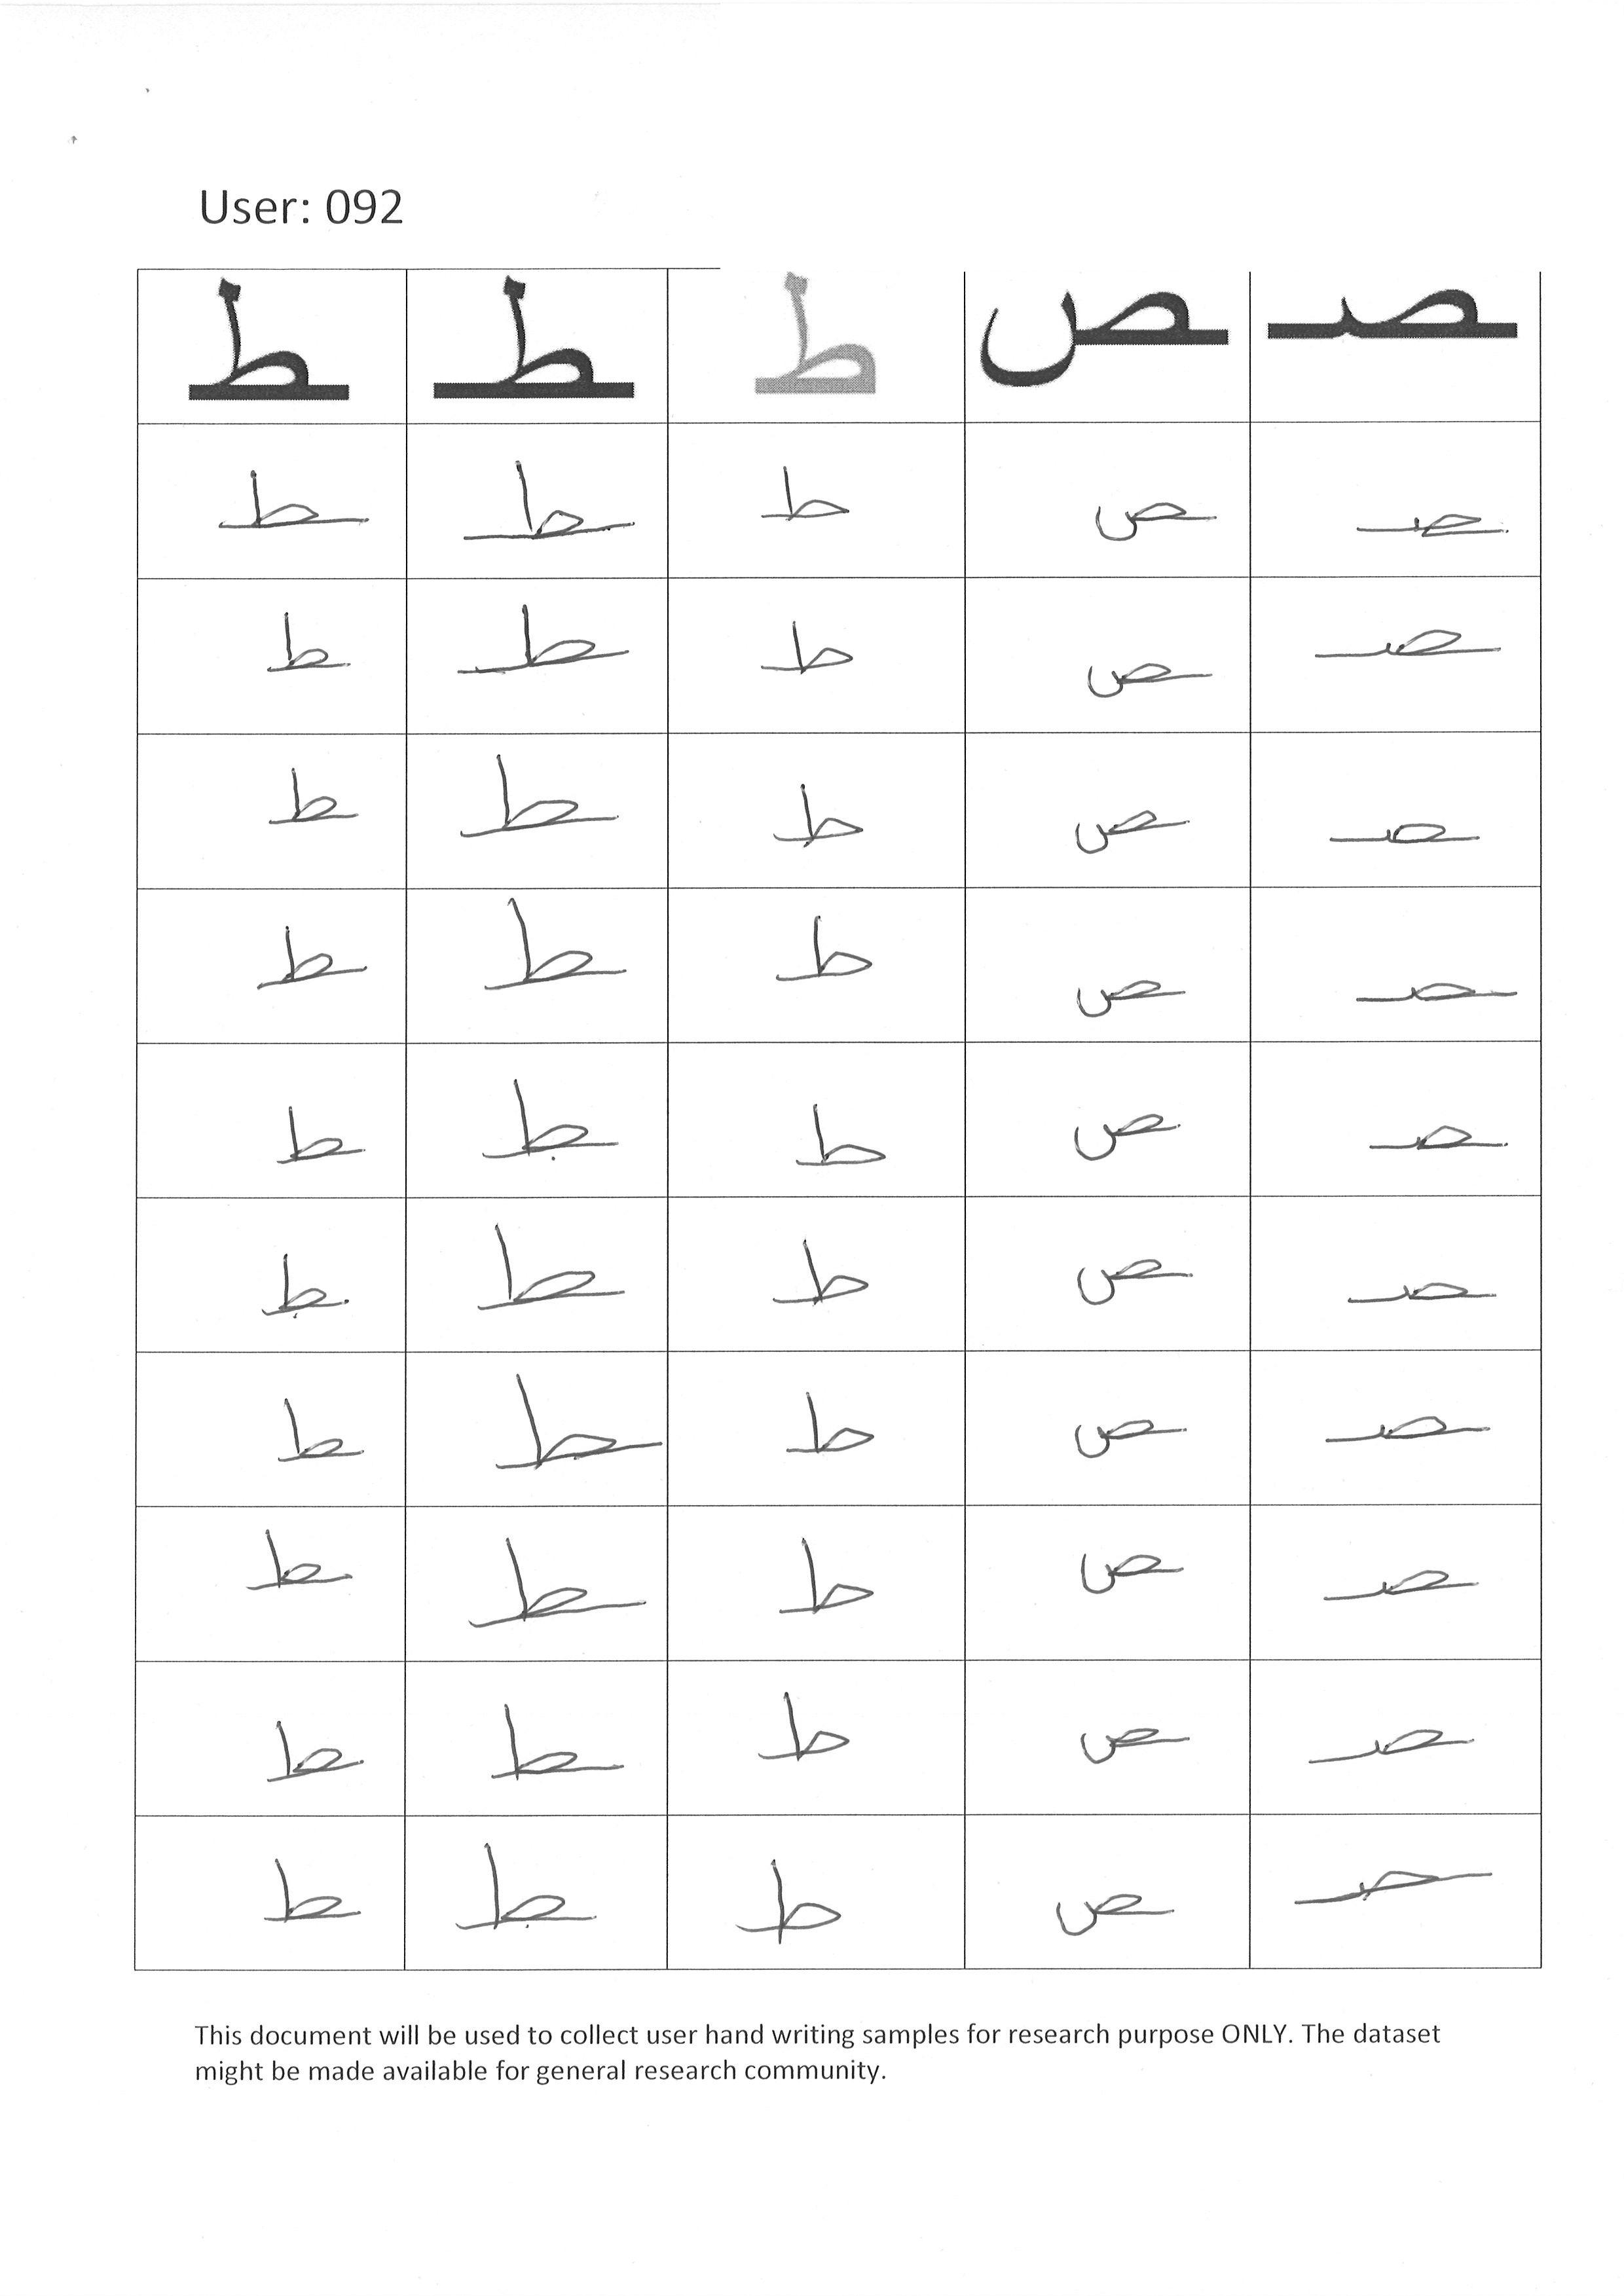 User: 092
ـصـ ـص ط ـطـ ـط
ـصـ ـص ط ـطـ ـط
ـصـ ـص ط ـطـ ـط
ـصـ ـص ط ـطـ ـط
ـصـ ـص ط ـطـ ـط
ـصـ ـص ط ـطـ ـط
ـصـ ـص ط ـطـ ـط
ـصـ ـص ط ـطـ ـط
ـصـ ـص ط ـطـ ـط
ـصـ ـص ط ـطـ ـط
ـصـ ـص ط ـطـ ـط
This document will be used to collect user hand writing samples for research purpose ONLY. The dataset
might be made available for general research community.